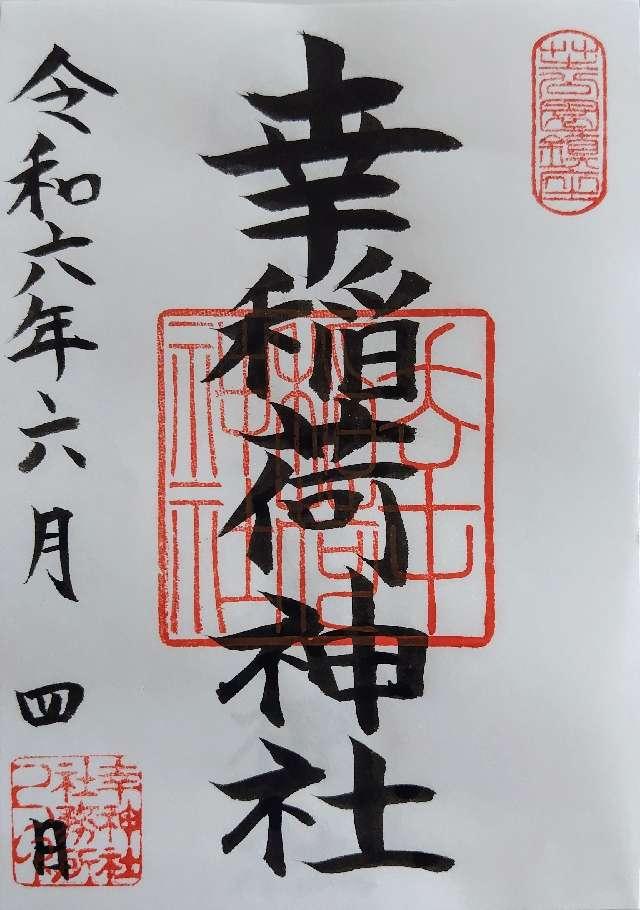 芝公園鎮座
幸稲荷神社
幸
稲荷
神社
令和六年六月四日
幸神社
社務所
之印